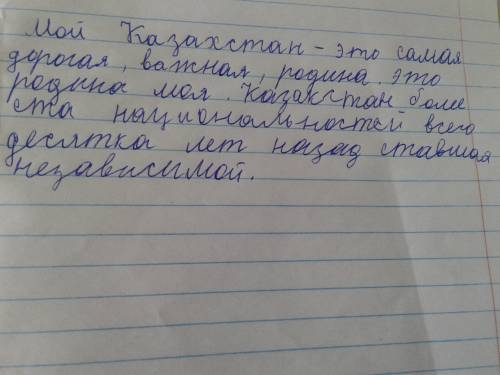 Мой Казахстан - это самая
дорогая, важная, родина. это
родина моя. Казакстан боле
ста национальностей всего
десятка лет назад ставшая
независимой.